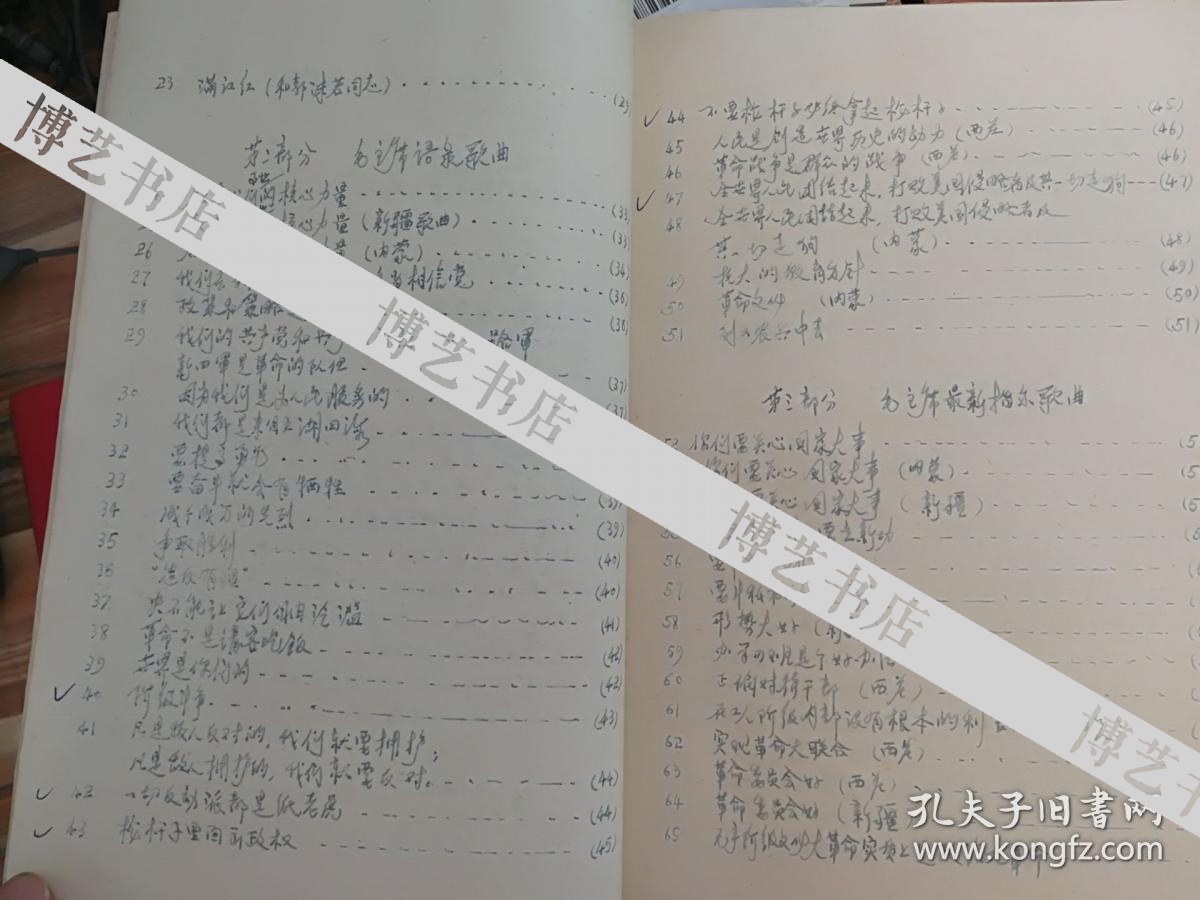 23 满江红(和郭沫若同志) (23)
第二部分 毛主席语录歌曲
的核心力量 (33)
心力量(新疆歌曲) (33)
26 量(内蒙) (34)
27 我们应当相信党 (36)
28 政策和策略 (36)
29 我们的共产党和 路軍
新四軍是革命的队伍 (37)
30 因为我们是为人民服务的 (37)
31 我们都是来自五湖四海
32 要提
33 要奋斗就会有牺牲
34 成千成万的先烈 (39)
35 争取胜利 (40)
36 "造反有理" (40)
37 决不能让它们自由泛滥 (41)
38 革命不是请客吃饭 (42)
39 世界是你们的 (42)
40 阶级斗争 (43)
41 凡是敌人反对的,我们就要拥护;
凡是敌人拥护的,我们就要反对。 (44)
42 一切反动派都是纸老虎 (44)
43 枪杆子里面出政权 (45)
44 不要枪杆子必须拿起枪杆子 (45)
45 人民是创造世界历史的动力(西差) (46)
46 革命战争是群众的战争(西差) (46)
47 全世界人民团结起来,打败美国侵略者及其一切走狗 (47)
48 全世界人民团结起来,打败美国侵略者及
其一切走狗 (内蒙) (48)
49 伟大的教育方针 (49)
50 革命文化 (内蒙) (50)
51 到工农兵中去 (51)
第三部分 毛主席最新指示歌曲
52 你们要关心国家大事 (5
你们要关心国家大事(内蒙) (5
要关心国家大事(新疆) (5
要立新功
56
57 要斗私
58 形势大好
59 办学习班是个好办法
60 正确对待干部(西差)
61 在工人阶级内部没有根本的利
62 实现革命大联合 (西差)
63 革命委员会好(西差)
64 革命委员会好(新疆)
65 无产阶级文化大革命实质上
博艺书店
博艺书店
博艺书店
博艺书店
孔夫子旧书网
www.kongfz.com